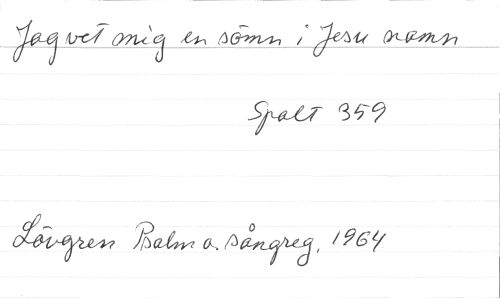 Jag vet mig en sömn i Jesu namn
Spalt 359
Lövgren Psalm o. sångreg. 1964